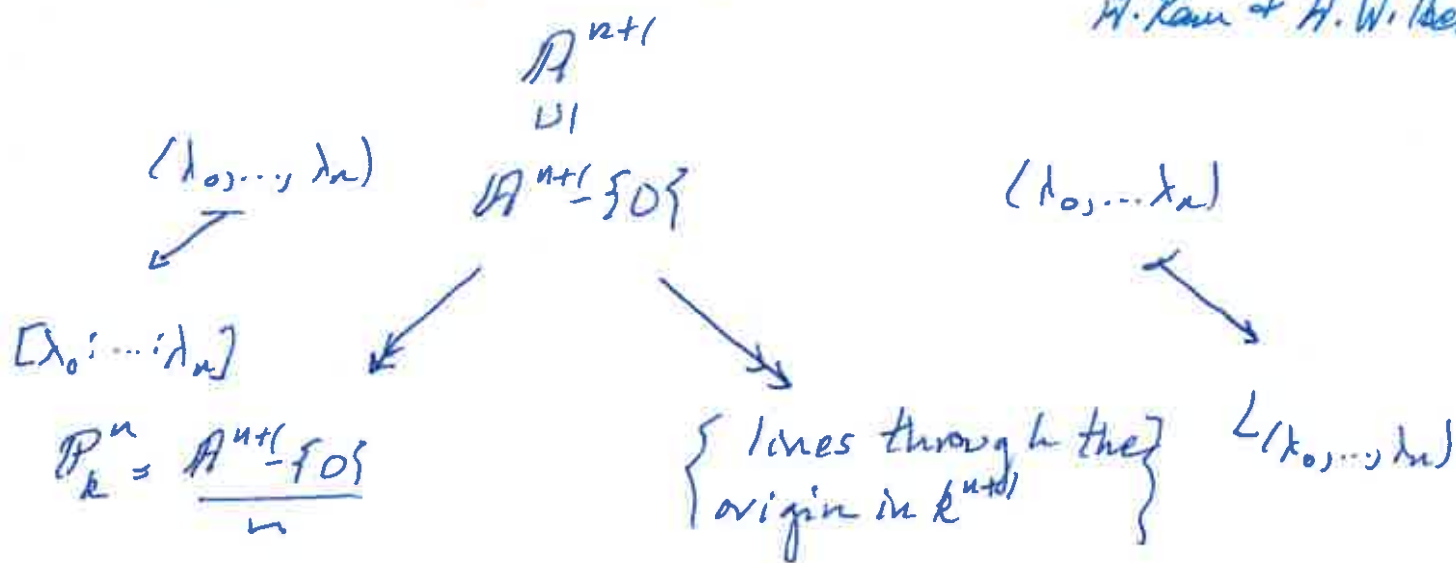 𝔸^{n+1}
∪|
(λ_0,..., λ_n)
𝔸^{n+1} - {0}
(λ_0,... λ_n)
[λ_0 : ... : λ_n]
ℙ^n_k = 𝔸^{n+1} - {0} / ~
{ lines through the origin in k^{n+1} }
L_{(λ_0,..., λ_n)}